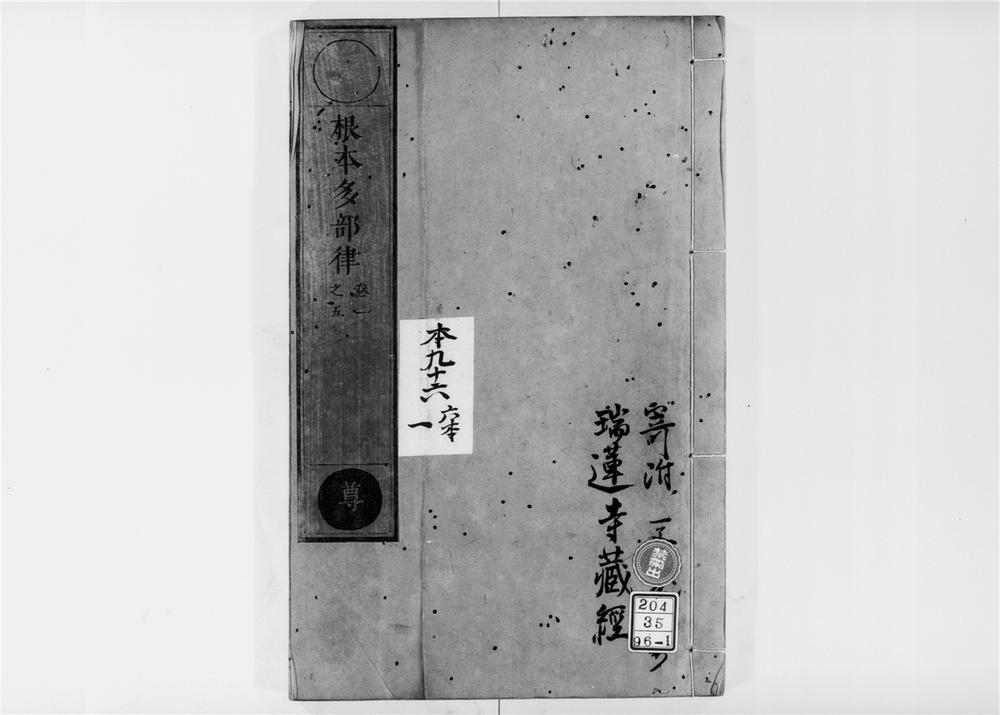 根本多部律
卷一
之五
尊
本九十六
六本
一
寄附
瑞蓮寺藏經
禁帶出
204
35
96-1